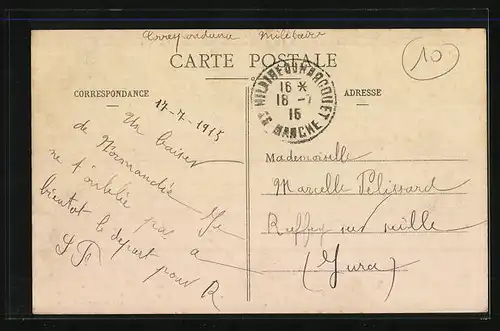 Correspondance Militaire
CARTE POSTALE
10
CORRESPONDANCE
ADRESSE
MILAIRE DU HARCOUET
16 *
18 -7
15
MANCHE
17-7-1915
Un baiser
de Normandie Je
ne t'oublie pas a
bientot le depart pour R
Mademoiselle
Marcelle Pelissard
Ruffey sur seille
(Jura)